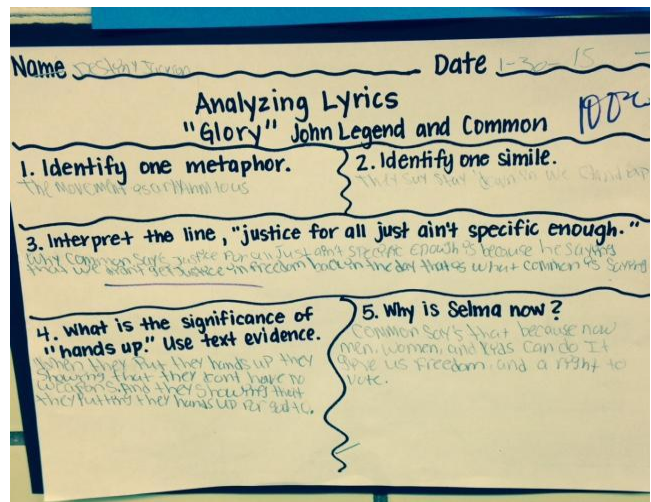 Name Date 1-30-15
Analyzing Lyrics
"Glory" John Legend and Common 100%
1. Identify one metaphor.
the movement is a rhythm to us
2. Identify one simile.
They say stay down in we stand up
3. Interpret the line, "justice for all just ain't specific enough."
Why Common says justice for all Just ain't specific enough is because he saying
that we didn't get justice in freedom back in the day that is what common is saying
4. What is the significance of
"hands up." Use text evidence.
When they put they hands up they
showing that they don't have no
weapons. And they showing that
they putting they hands up for
5. Why is Selma now?
Common say's that because now
men, women, and kids can do It
give us freedom, and a right to
vote.